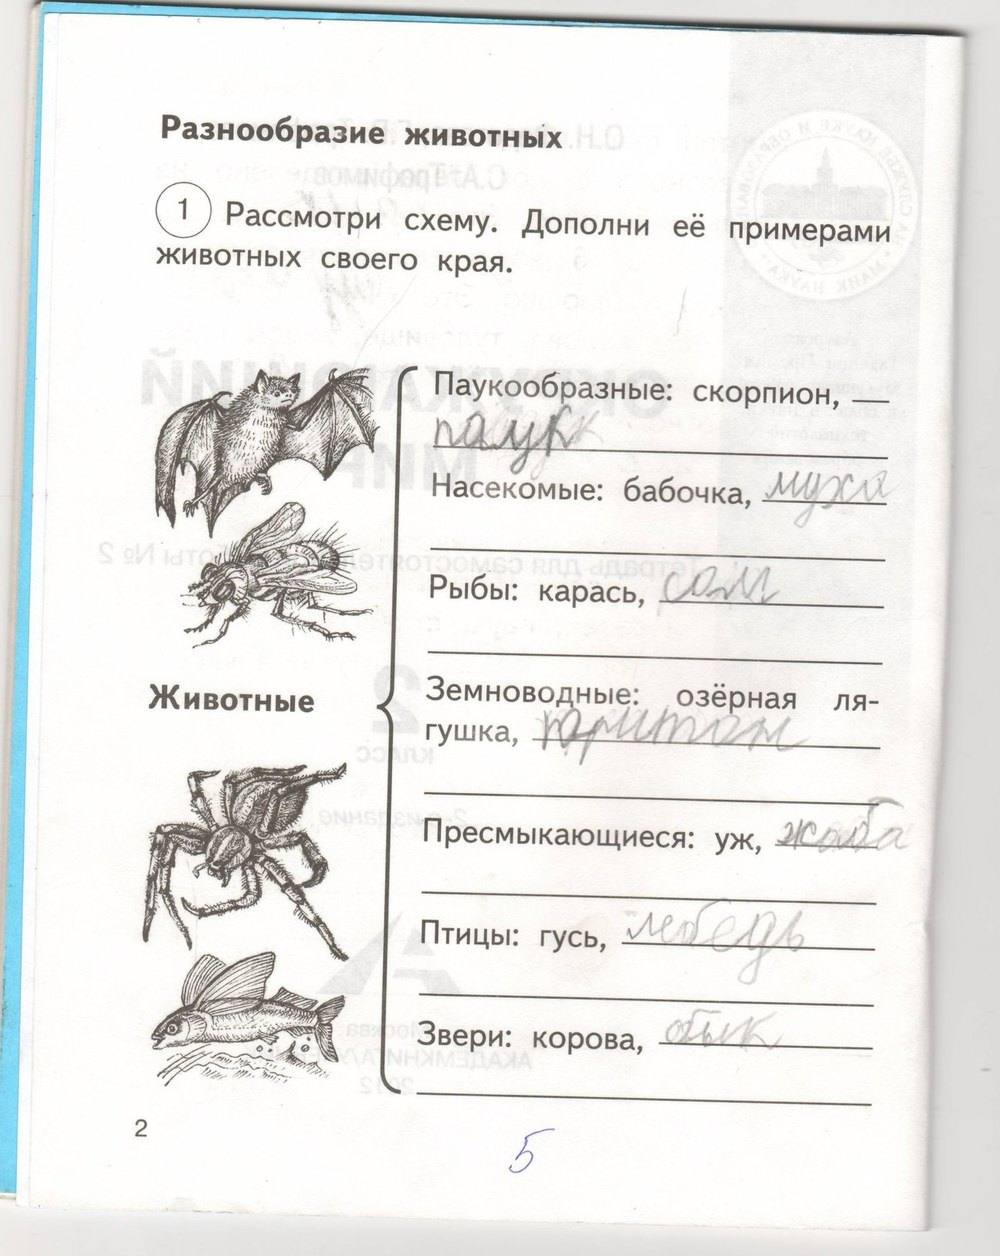 Разнообразие животных
1 Рассмотри схему. Дополни её примерами
животных своего края.
Паукообразные: скорпион,
паук
Насекомые: бабочка, муха
Рыбы: карась, сом
Животные
Земноводные: озёрная ля-
гушка, тритон
Пресмыкающиеся: уж, жаба
Птицы: гусь, лебедь
Звери: корова, бык
2
5